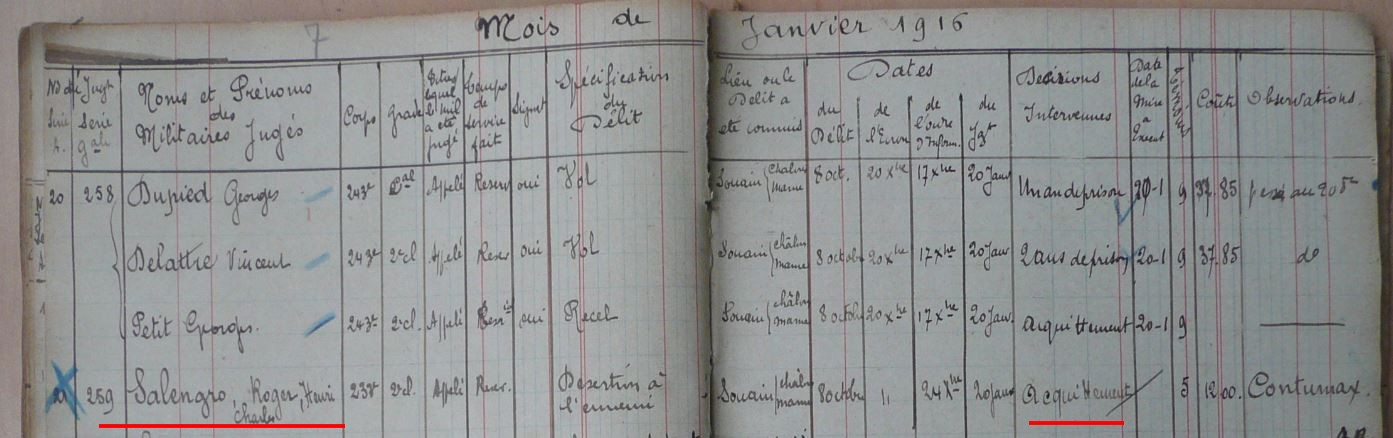 7 Mois de Janvier 1916
Noms et Prénoms des Militaires Jugés
Corps
Grade
Temps de service fait
Spécification du Délit
Lieu ou le Délit a été commis
Dates
du Délit
de l'Ecrou
du Jgt
Décisions Intervenues
Date de la Mise a Execut
Coûts
Observations.
20 258 Dupied Georges 243e Cal Appelé Reserv oui Vol Souain châlon marne 8 oct. 20 Xbre 17 Xbre 20 Janv Un an de prison 20-1 9 37.85
Delattre Vincent 243e 2e cl Appelé Reser oui Vol Souain châlon marne 8 octobr 20 Xbre 17 Xbre 20 Janv 2 ans de prison 20-1 9 37.85 do
Petit Georges. 243e 2e cl. Appelé oui Recel Souain châlon marne 8 octobr 20 Xbre 17 Xbre 20 Janv. acquittement 20-1 9
259 Salengro, Roger, Henri Charles 233e 2e cl. Appelé Reser. Desertion à l'ennemi Souain châlon marne 8 octobr 24 Xbre 20 Janv Acquittement 5 12.00. Contumax.